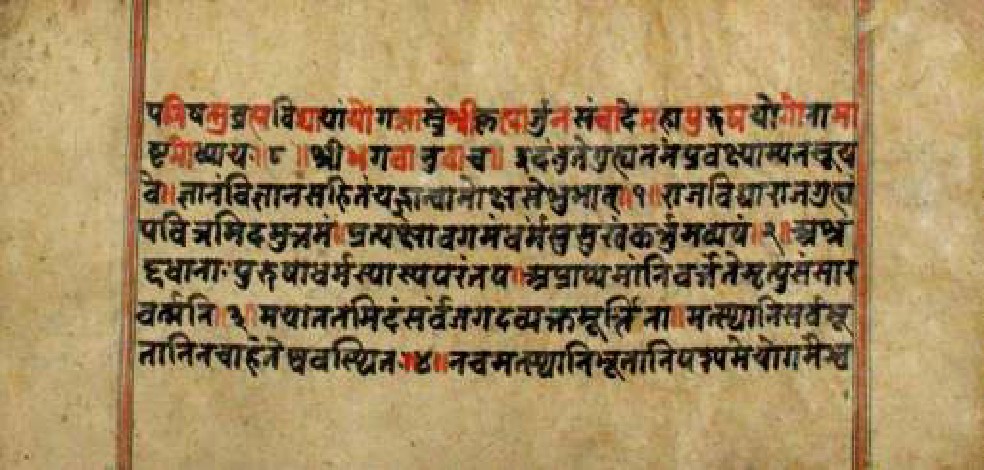 पनिषत्सुब्रह्मविद्यायांयोगशास्त्रेश्रीकृष्णार्जुनसंवादेमहापुरुषयोगोनामा
ष्टमोध्यायः ॥८॥ श्रीभगवानुवाच ॥ इदंतुतेगुह्यतमंप्रवक्ष्याम्यनसूय
वे ॥ ज्ञानंविज्ञानसहितंयज्ज्ञात्वामोक्ष्यसेशुभात् ॥१॥ राजविद्याराजगुह्यं
पवित्रमिदमुत्तमं ॥ प्रत्यक्षावगमंधर्म्यंसुसुखंकर्तुमव्ययं ॥२॥ अश्र
द्दधानाःपुरुषाधर्मस्यास्यपरंतप ॥ अप्राप्यमांनिवर्त्तंतेमृत्युसंसार
वर्त्मनि ॥३॥ मयाततमिदंसर्वंजगदव्यक्तमूर्त्तिना ॥ मत्स्थानिसर्वभू
तानिनचाहंतेष्ववस्थितः ॥४॥ नचमत्स्थानिभूतानिपश्यमेयोगमैश्व